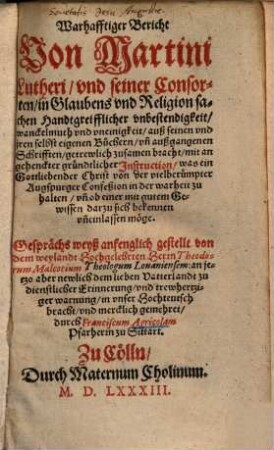 Societatis Jesu Augustæ.
Warhafftiger Bericht
Von Martini
Lutheri / vnd seiner Consor-
ten / in Glaubens vnd Religion sa-
chen Handtgreifflicher vnbestendigkeit /
wanckelmuth vnd vneinigkeit / auß seinen vnd
jren selbst eigenen Büchern / vñ außgangenen
Schrifften / getrewlich zusamen bracht / mit an
gehenckter gründtlicher Instruction / was ein
Gottliebender Christ von der vielberümpter
Augspurger Confession in der warheit zu
halten / vñ ob einer mit gutem Ge-
wissen darzu sich bekennen
vñ einlassen möge.
Gesprächs weyß anfenglich gestelt von
dem weylandt Hochgelehrten Herrn Theodo-
rum Maleotium Theologum Louaniensem: an je-
tzo aber newlich dem lieben Vatterlandt zu
dienstlicher Erinnerung / vnd trewhertzi-
ger warnung / in vnser Hochteutsch
bracht / vnd mercklich gemehret /
durch Franciscum Agricolam
Pfarherrn zu Sittart.
Zu Cölln /
Durch Maternum Cholinum.
M. D. LXXXIII.